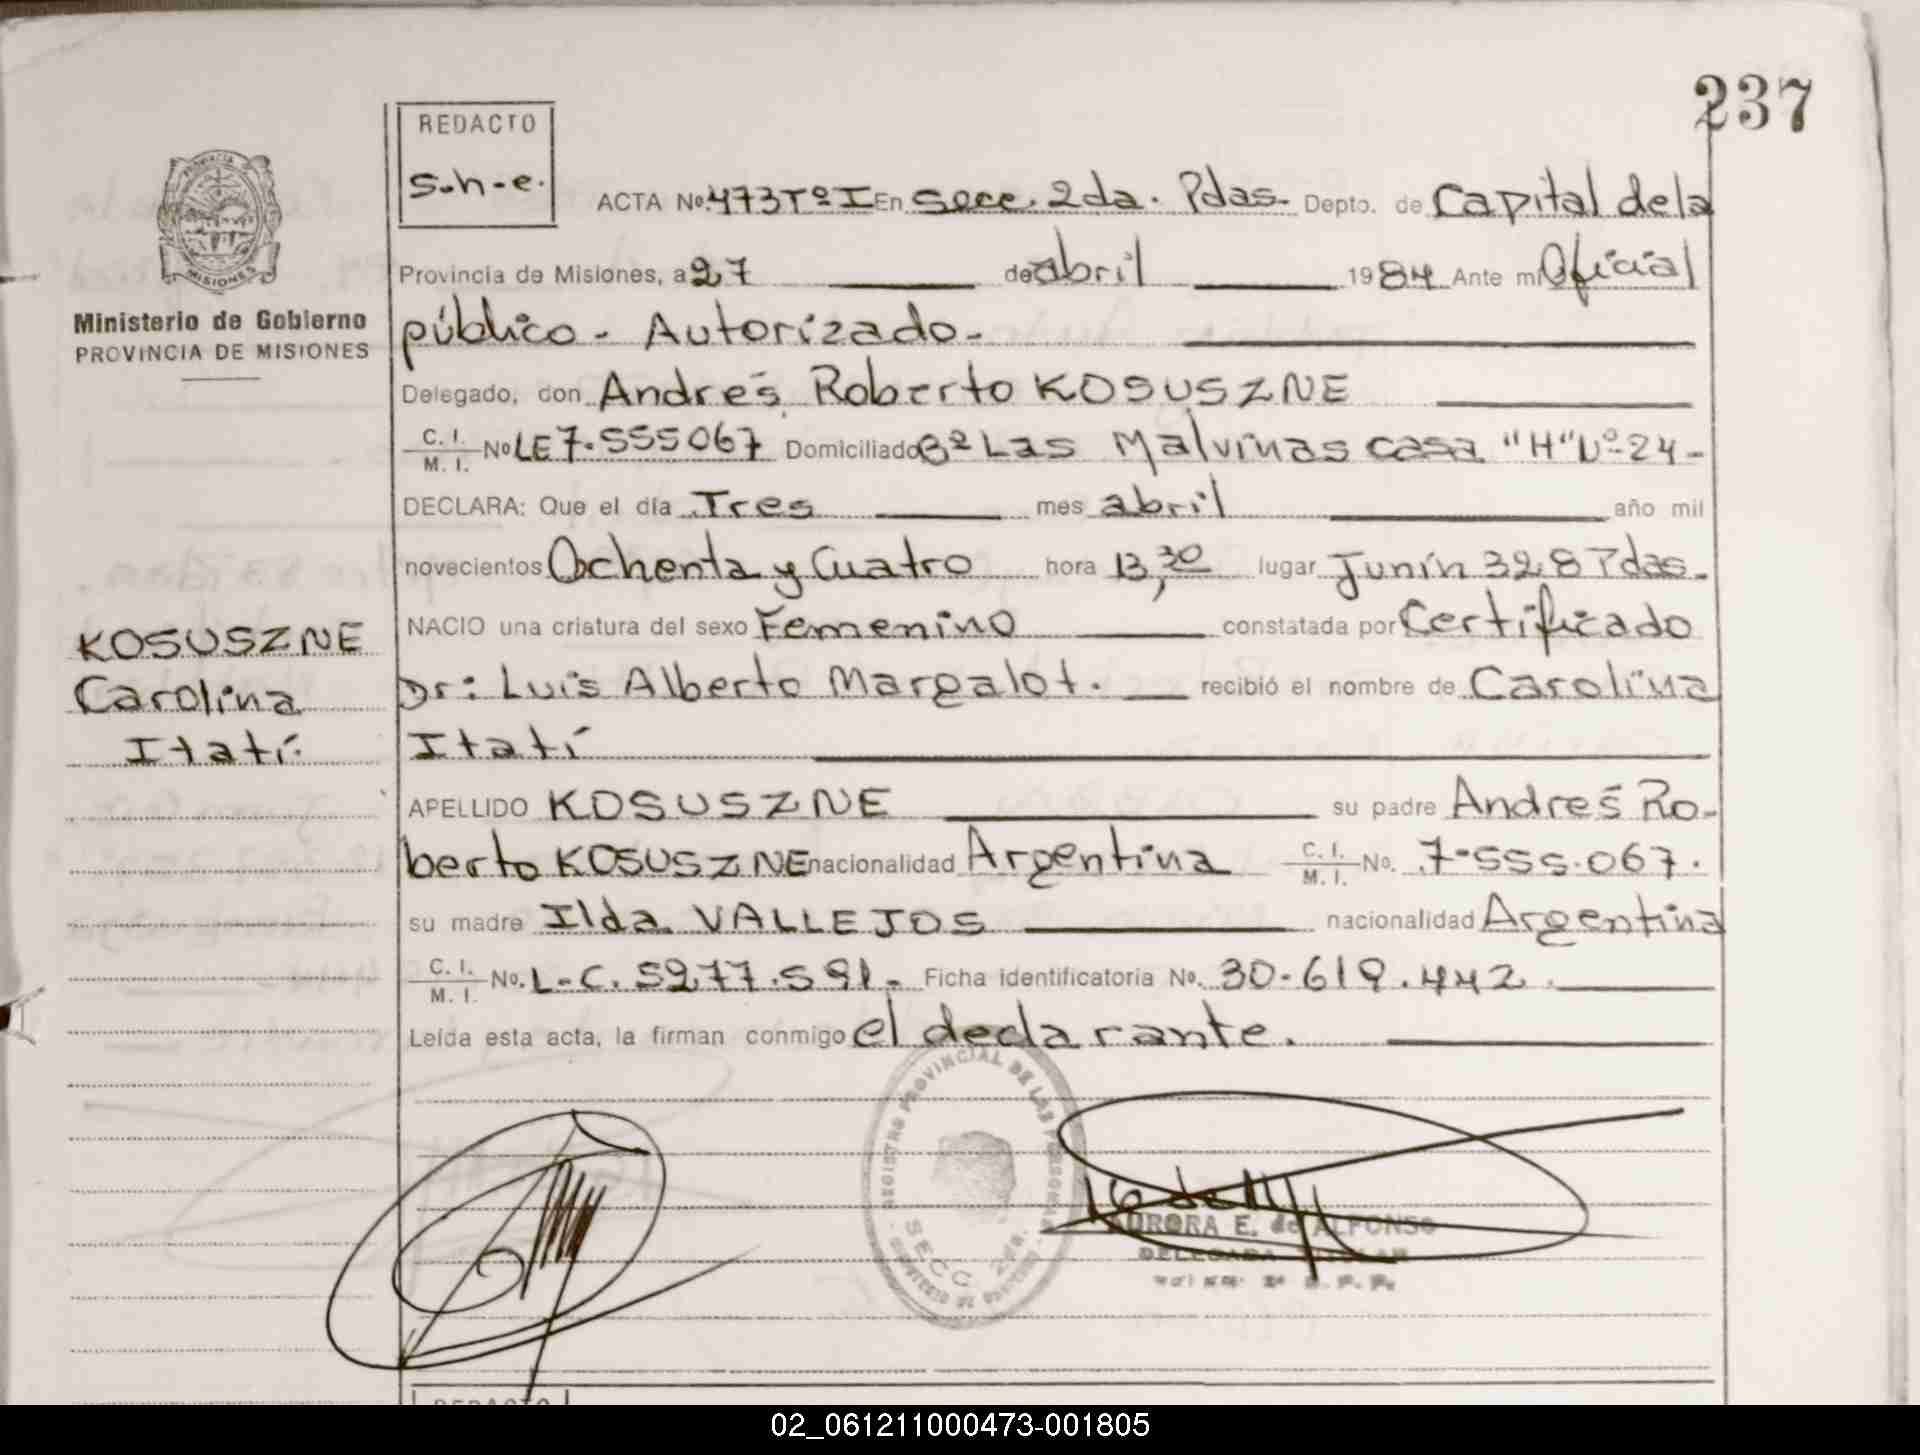 237
REDACTO
S-h-e.
ACTA Nº 473 Tº I En Secc. 2da. Pdas. Depto. de Capital de la
Provincia de Misiones, a 27 de abril 1984 Ante mi Oficial
público - Autorizado -
Delegado, don Andrés Roberto KOSUSZNE
C. I. / M. I. Nº LE 7.555067 Domiciliado Bº Las Malvinas casa "H" Nº 24 -
DECLARA: Que el día Tres mes abril año mil
novecientos Ochenta y Cuatro hora 13,30 lugar Junín 328 Pdas.
NACIO una criatura del sexo Femenino constatada por Certificado
Dr: Luis Alberto Margalot. recibió el nombre de Carolina
Itatí
APELLIDO KOSUSZNE su padre Andrés Ro-
berto KOSUSZNE nacionalidad Argentina C. I. / M. I. No. 7-555.067.
su madre Ilda VALLEJOS nacionalidad Argentina
C. I. / M. I. No. L-C. 5277.591. Ficha identificatoria No. 30-619.442
Leída esta acta, la firman conmigo el declarante.
Ministerio de Gobierno
PROVINCIA DE MISIONES
KOSUSZNE
Carolina
Itatí
PROVINCIA
MISIONES
REGISTRO PROVINCIAL DE LAS PERSONAS
SECC 2da.
AURORA E. de ALFONSO
DELEGADA TITULAR
REDACTO
02_061211000473-001805